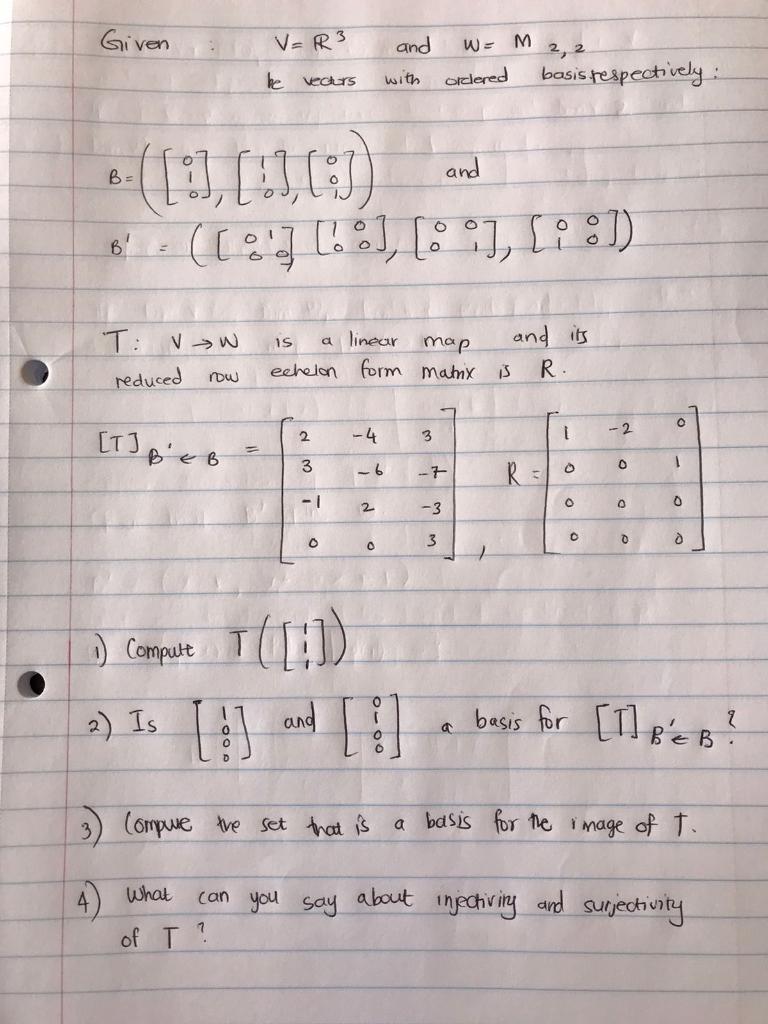 Given : V = ℝ³ and W = M 2,2
be vectors with ordered basis respectively :
B = ([0 1 0], [1 1 0], [0 0 1]) and
B' = ([0 1; 0 0] [1 0; 0 0], [0 0; 0 1], [0 0; 1 0])
T : V → W is a linear map and its
reduced row echelon form matrix is R.
[T] B' ← B = [2 -4 3; 3 -6 -7; -1 2 -3; 0 0 3], R = [1 -2 0; 0 0 1; 0 0 0; 0 0 0]
1) Compute T([1 1 1])
2) Is [1 0 0 0] and [0 1 0 0] a basis for [T] B' ← B ?
3) Compute the set that is a basis for the image of T.
4) What can you say about injectivity and surjectivity
of T ?